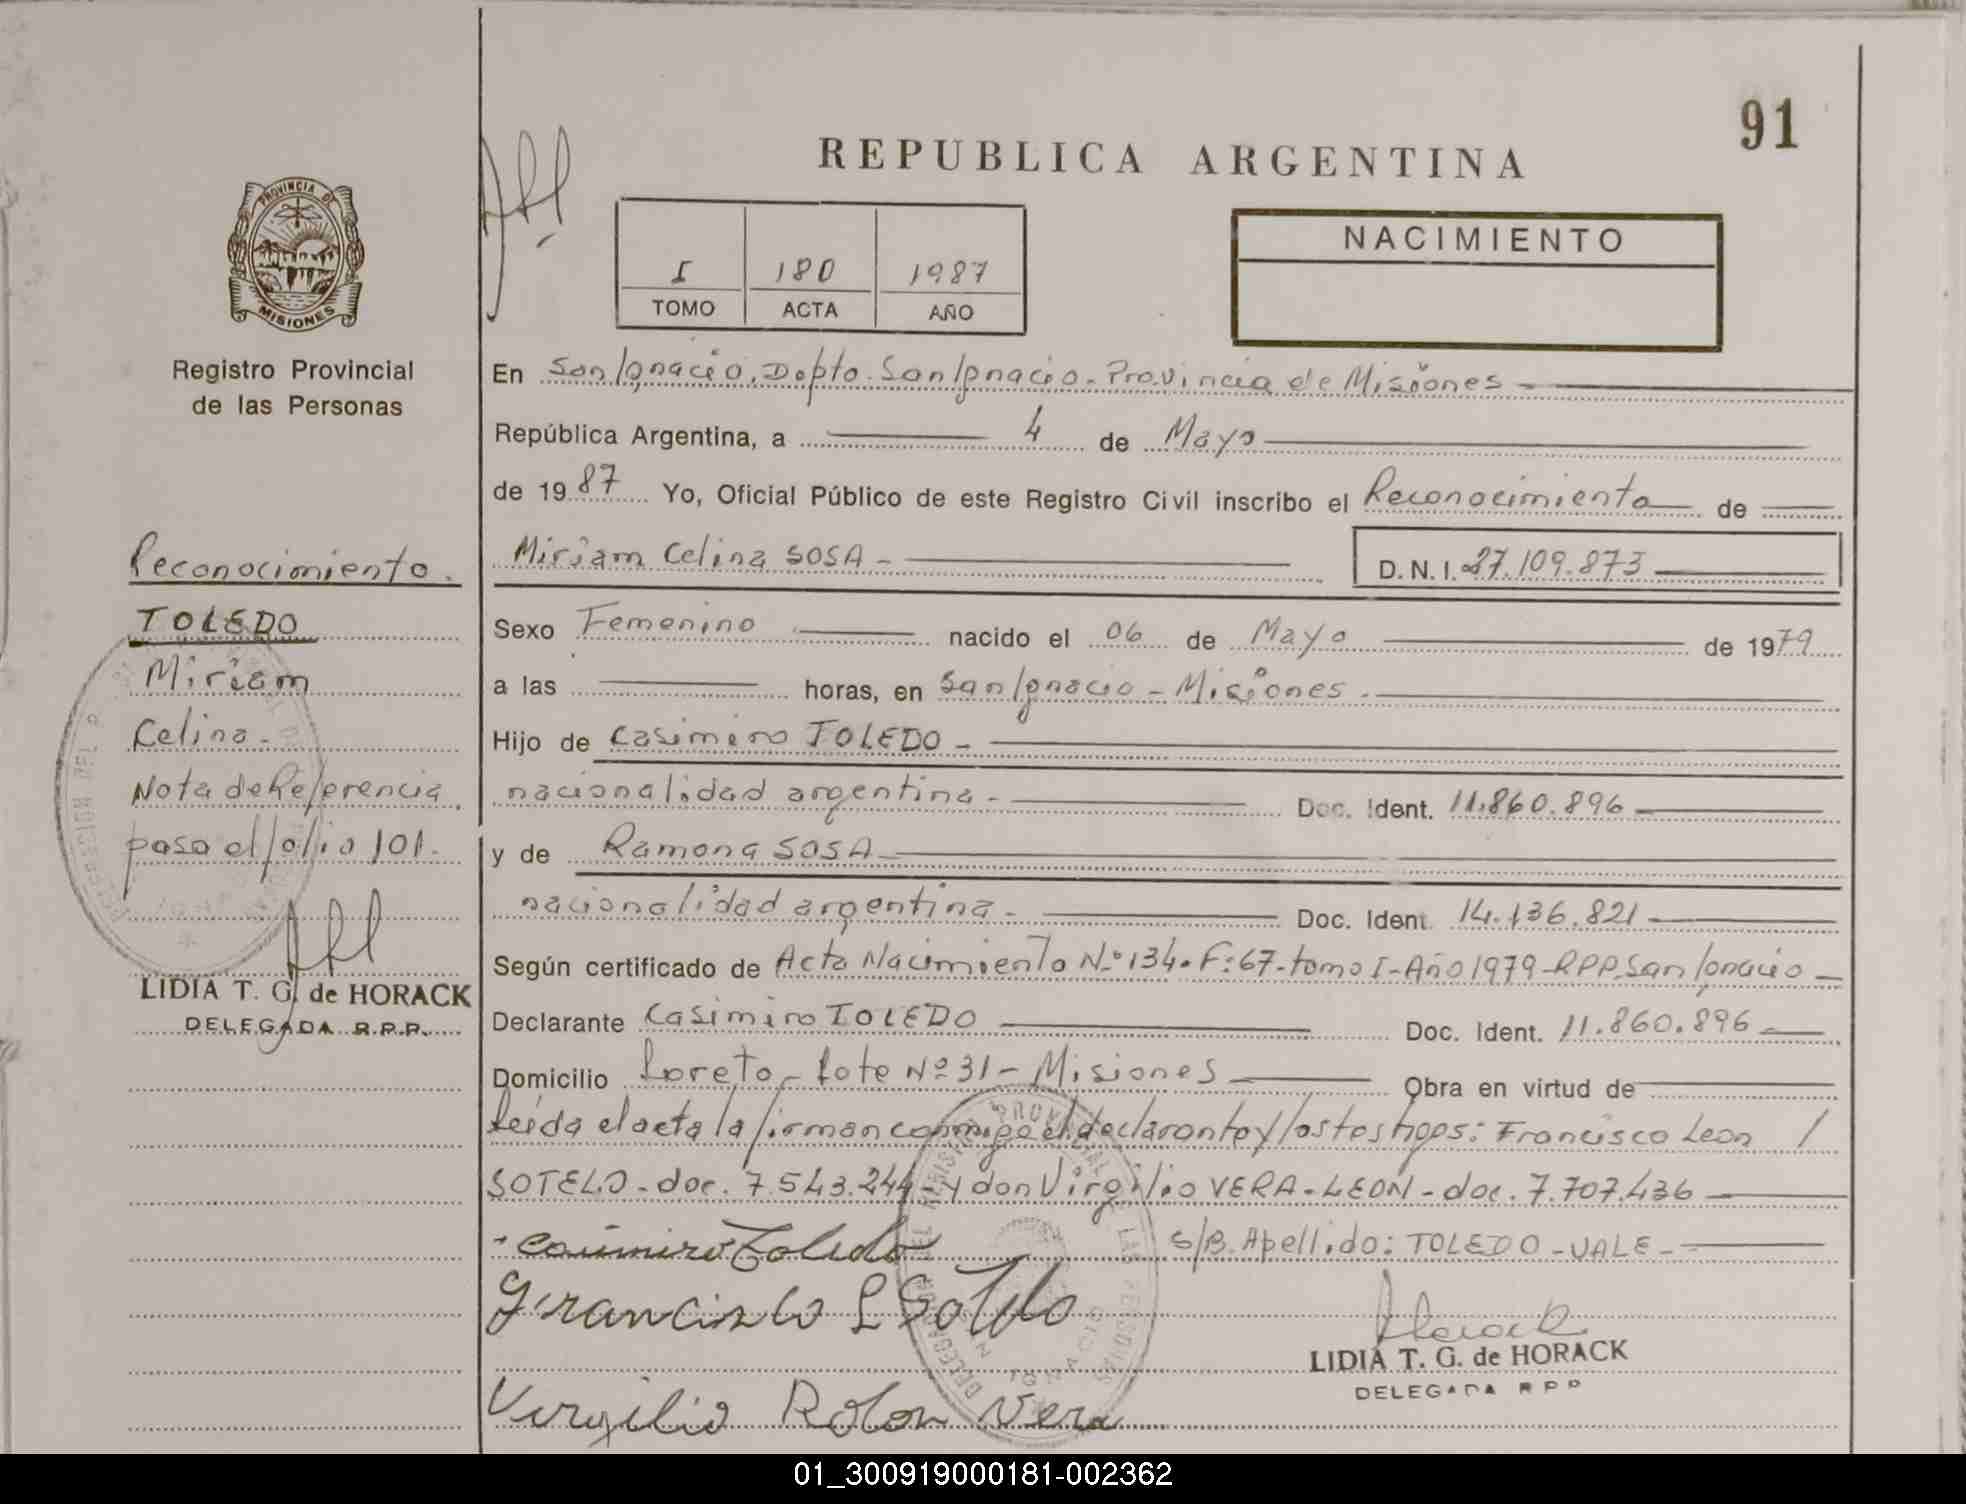 91
REPUBLICA ARGENTINA
PROVINCIA DE
MISIONES
Registro Provincial
de las Personas
I 180 1987
TOMO ACTA AÑO
NACIMIENTO
Reconocimiento.
TOLEDO
Miriam
Celina.
Nota de Referencia
pasa el folio 101.
LIDIA T. G. de HORACK
DELEGADA R.P.P.
En San Ignacio. Dopto. San Ignacio. Provincia de Misiones
República Argentina, a 4 de Mayo
de 1987 Yo, Oficial Público de este Registro Civil inscribo el Reconocimiento de
Miriam Celina SOSA - D.N.I. 27.109.873
Sexo Femenino nacido el 06 de Mayo de 1979
a las horas, en San Ignacio - Misiones.
Hijo de Casimiro TOLEDO -
nacionalidad argentina - Doc. Ident. 11.860.896
y de Ramona SOSA
nacionalidad argentina - Doc. Ident. 14.136.821
Según certificado de Acta Nacimiento Nº 134. F:67. tomo I - Año 1979 - RPP. San Ignacio
Declarante Casimiro TOLEDO Doc. Ident. 11.860.896
Domicilio Loreto - Lote Nº 31 - Misiones Obra en virtud de
Leída el acta la firman conmigo el declarante y los testigos: Francisco Leon /
SOTELO - doc. 7.543.244 - y don Virgilio VERA - LEON - doc. 7.707.436
Casimiro Toledo S/B. Apellido: TOLEDO - VALE -
Francisco L Sotelo
Horack
LIDIA T. G. de HORACK
DELEGADA RPP
Virgilio Rolon Vera
01_300919000181-002362